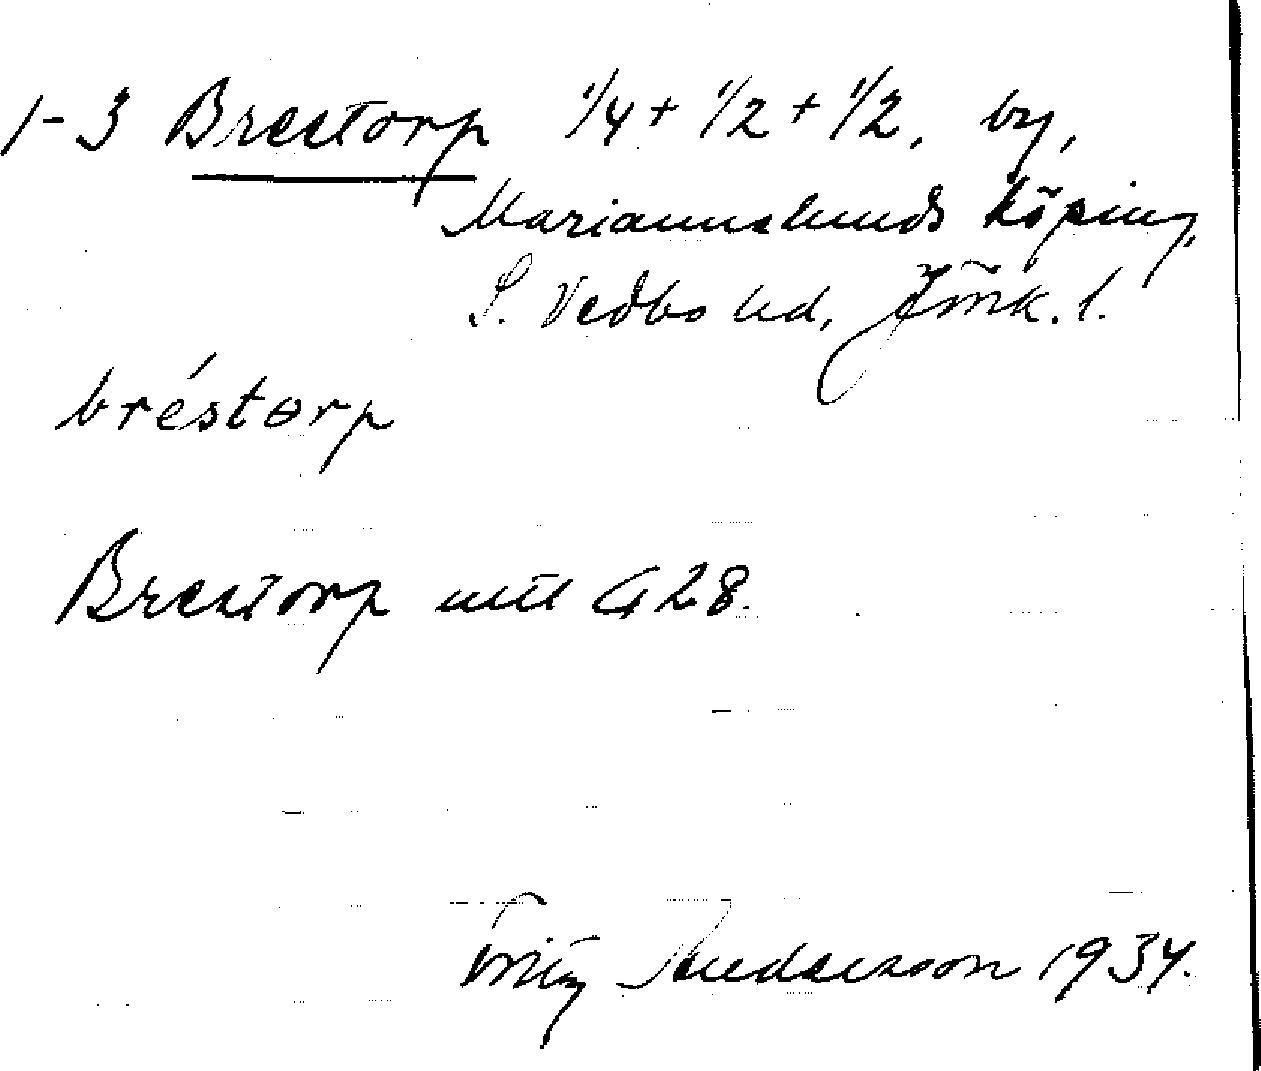 1-3 Brestorp 1/4 + 1/2 + 1/2, by,
Mariannelunds köping,
S. Vedbo hd, Jönk. l.
bréstɵrp
Brestorp 428.
Fritz 1934.